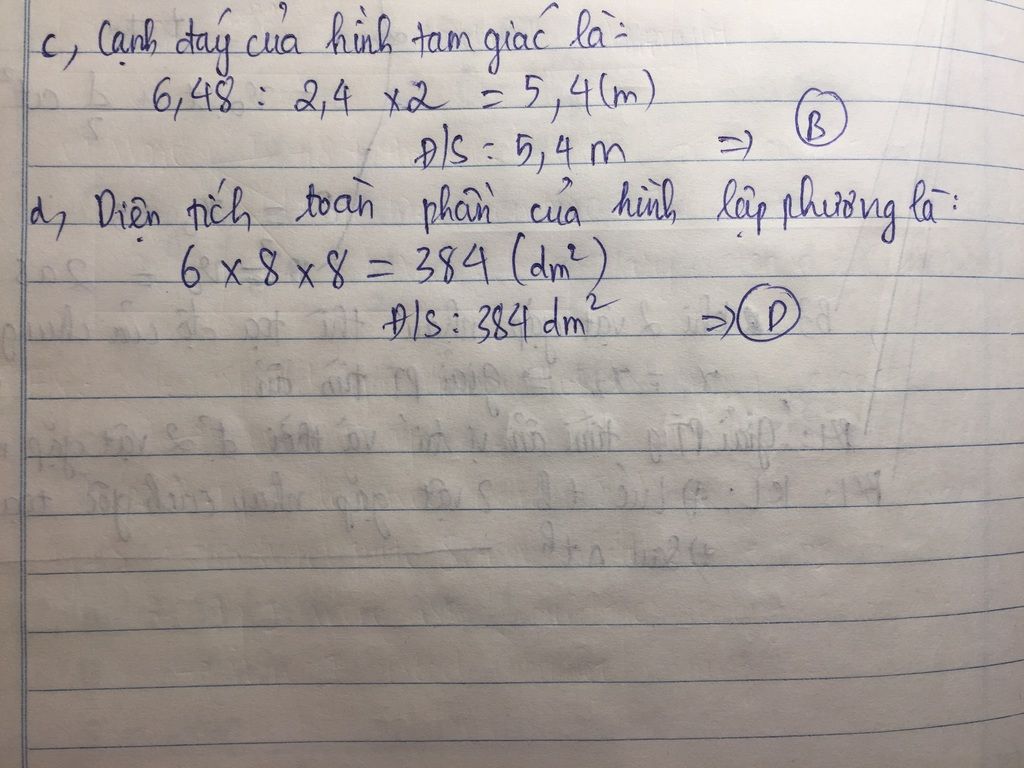 c, Cạnh đáy của hình tam giác là:
6,48 : 2,4 x2 = 5,4(m)
Đ/S : 5,4 m => B
d, Diện tích toàn phần của hình lập phương là:
6 x 8 x 8 = 384 (dm²)
Đ/S : 384 dm² => D